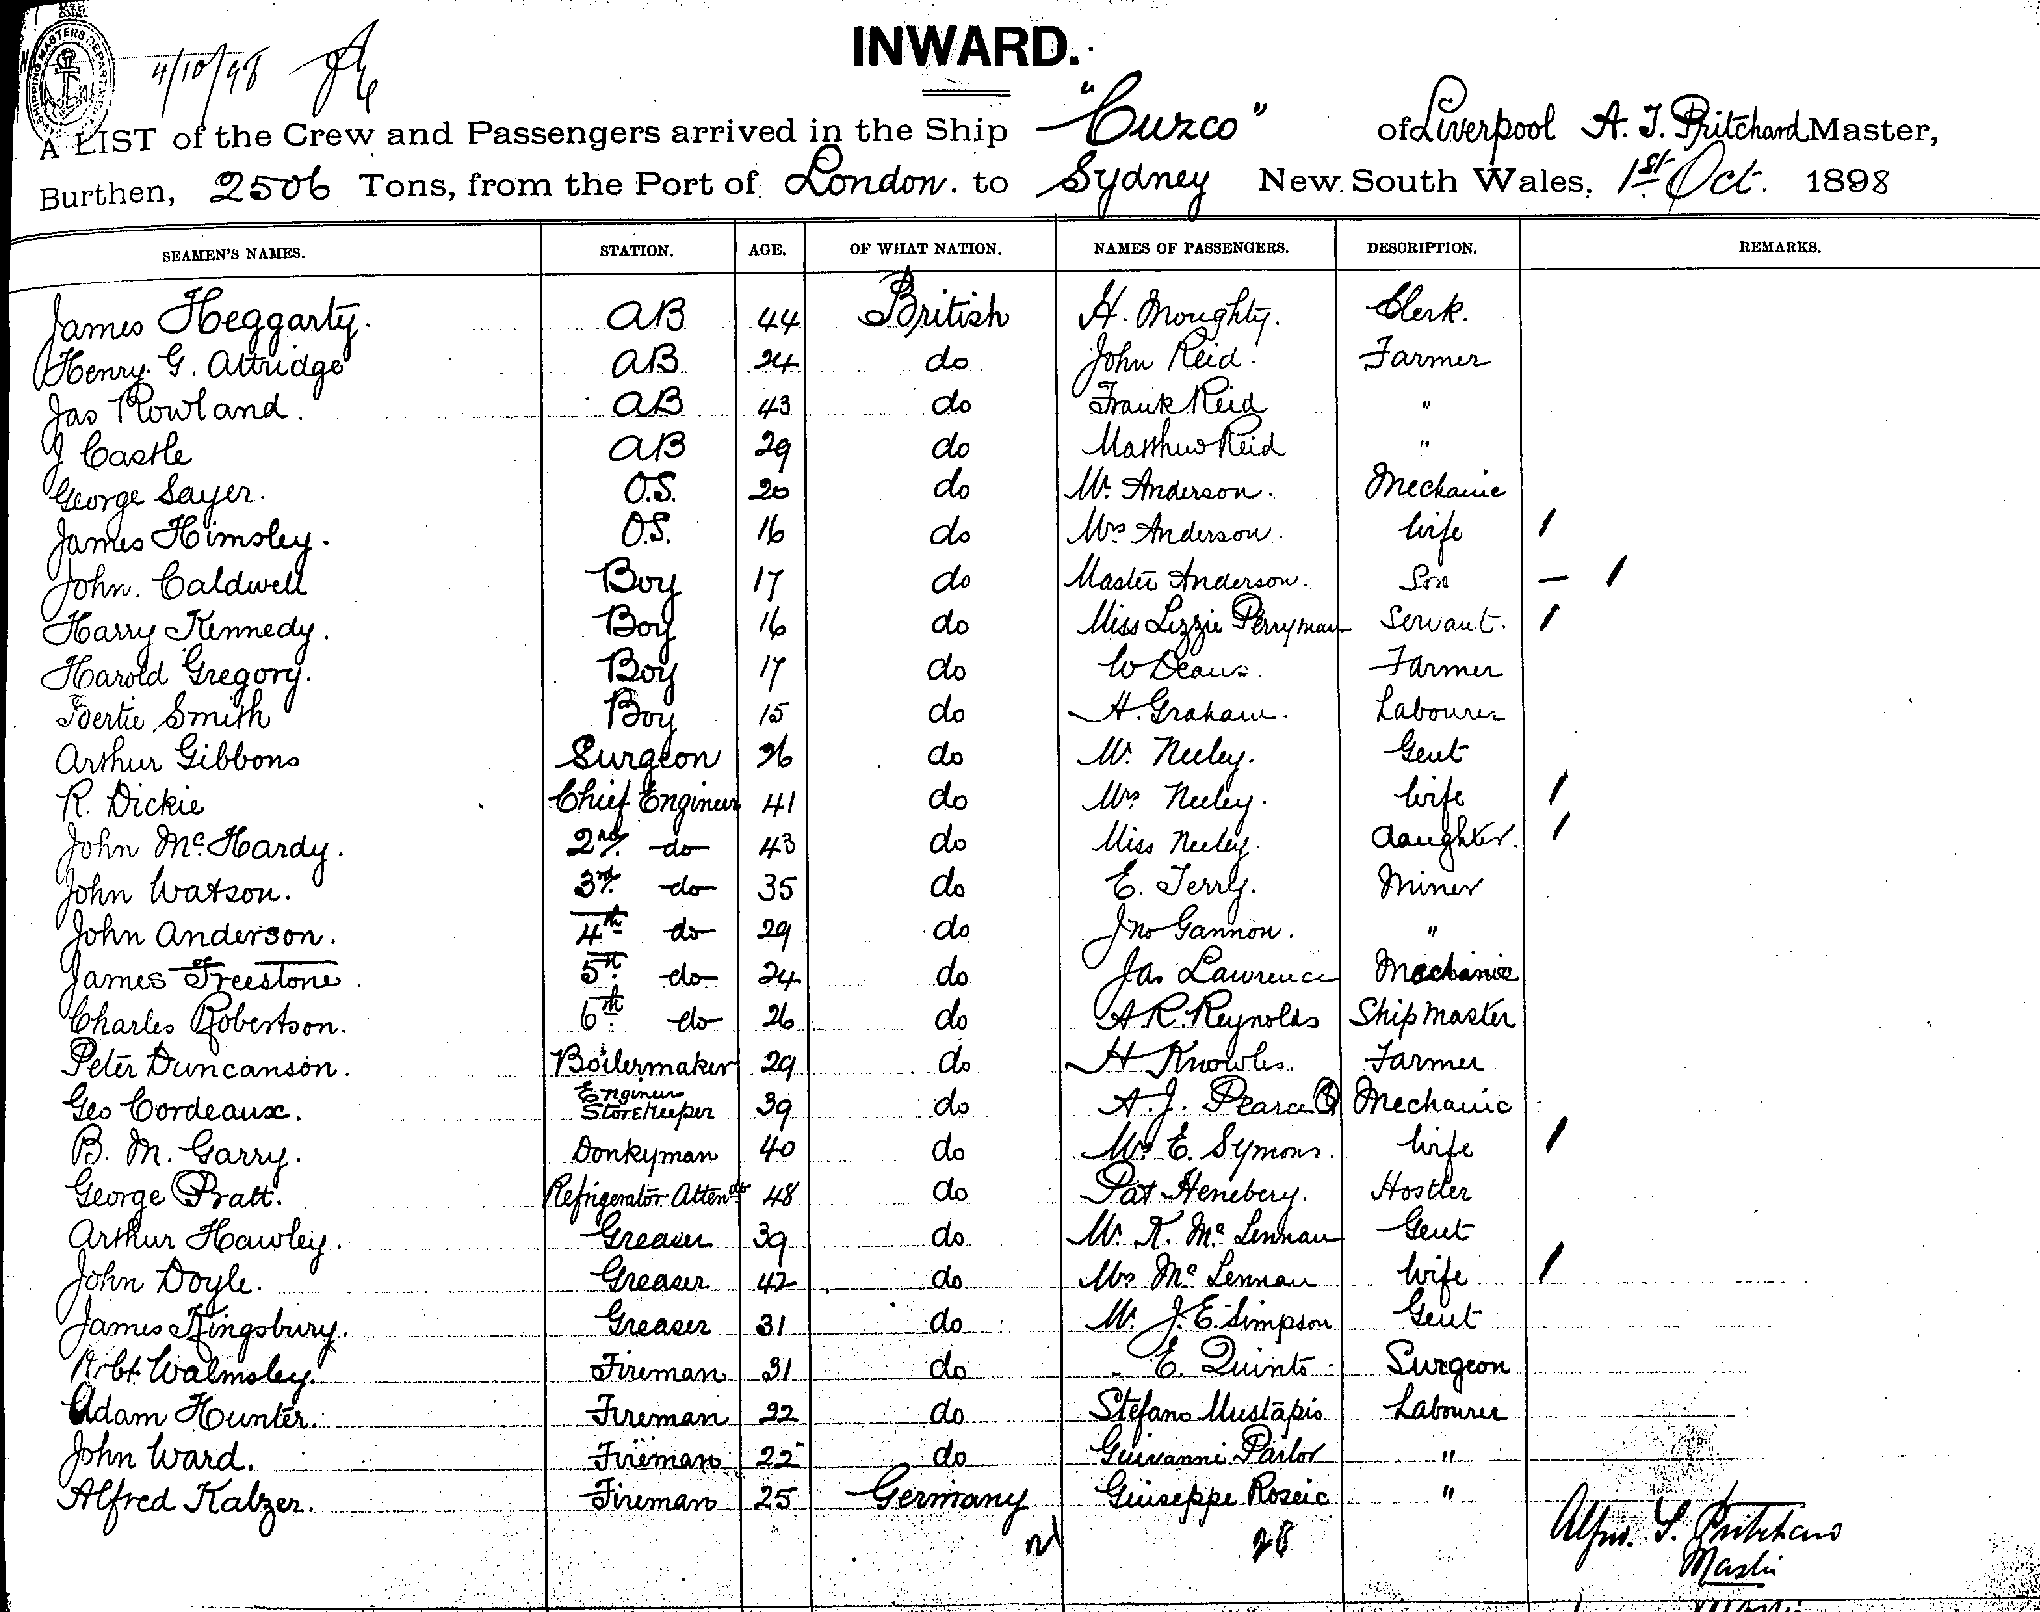 INWARD.
4/10/98
A LIST of the Crew and Passengers arrived in the Ship "Cuzco" of Liverpool A. J. Pritchard Master,
Burthen, 2506 Tons, from the Port of London. to Sydney New South Wales, 1st Oct. 1898
SEAMEN'S NAMES. STATION. AGE. OF WHAT NATION. NAMES OF PASSENGERS. DESCRIPTION. REMARKS.
James Heggarty. AB 44 British H. Moughty. Clerk.
Henry. G. Attridge AB 24 do John Reid. Farmer
Jas Rowland. AB 43 do Frank Reid "
J Castle AB 29 do Matthew Reid "
George Sayer. O.S. 20 do Mr. Anderson. Mechanic
James Himsley. O.S. 16 do Mrs Anderson. Wife /
John. Caldwell Boy 17 do Master Anderson. Son — /
Harry Kennedy. Boy 16 do Miss Lizzie Perryman Servant. /
Harold Gregory. Boy 17 do W Deans. Farmer
Bertie Smith Boy 15 do H. Graham. Labourer
Arthur Gibbons Surgeon 26 do Mr. Neeley. Gent
R. Dickie Chief Engineer 41 do Mrs Neeley. Wife /
John McHardy. 2nd do 43 do Miss Neeley. daughter. /
John Watson. 3rd do 35 do E. Terry. Miner
John Anderson. 4th do 29 do Jno Gannon. "
James Freestone. 5th do 24 do Jas Lawrence Mechanic
Charles Robertson. 6th do 26 do A R. Reynolds Ship Master
Peter Duncanson. Boilermaker 29 do H Knowles. Farmer
Geo Cordeaux. Engineer Storekeeper 39 do A. J. Pearce Mechanic
B. M. Garry. Donkyman 40 do Mrs E. Symons. Wife /
George Pratt. Refrigerator Attendt 48 do Pat Henebery. Hostler
Arthur Hawley. Greaser 39 do Mr. K. McLennan Gent
John Doyle. Greaser 42 do Mrs McLennan Wife /
James Kingsbury. Greaser 31 do Mr. J. E. Simpson Gent
Robt Walmsley. Fireman 31 do E. Quinto Surgeon
Adam Hunter. Fireman 32 do Stefano Mustapis Labourer
John Ward. Fireman 22 do Giuvanni Parlor "
Alfred Kalzer. Fireman 25 Germany Giuseppe Roseic "
28
Master